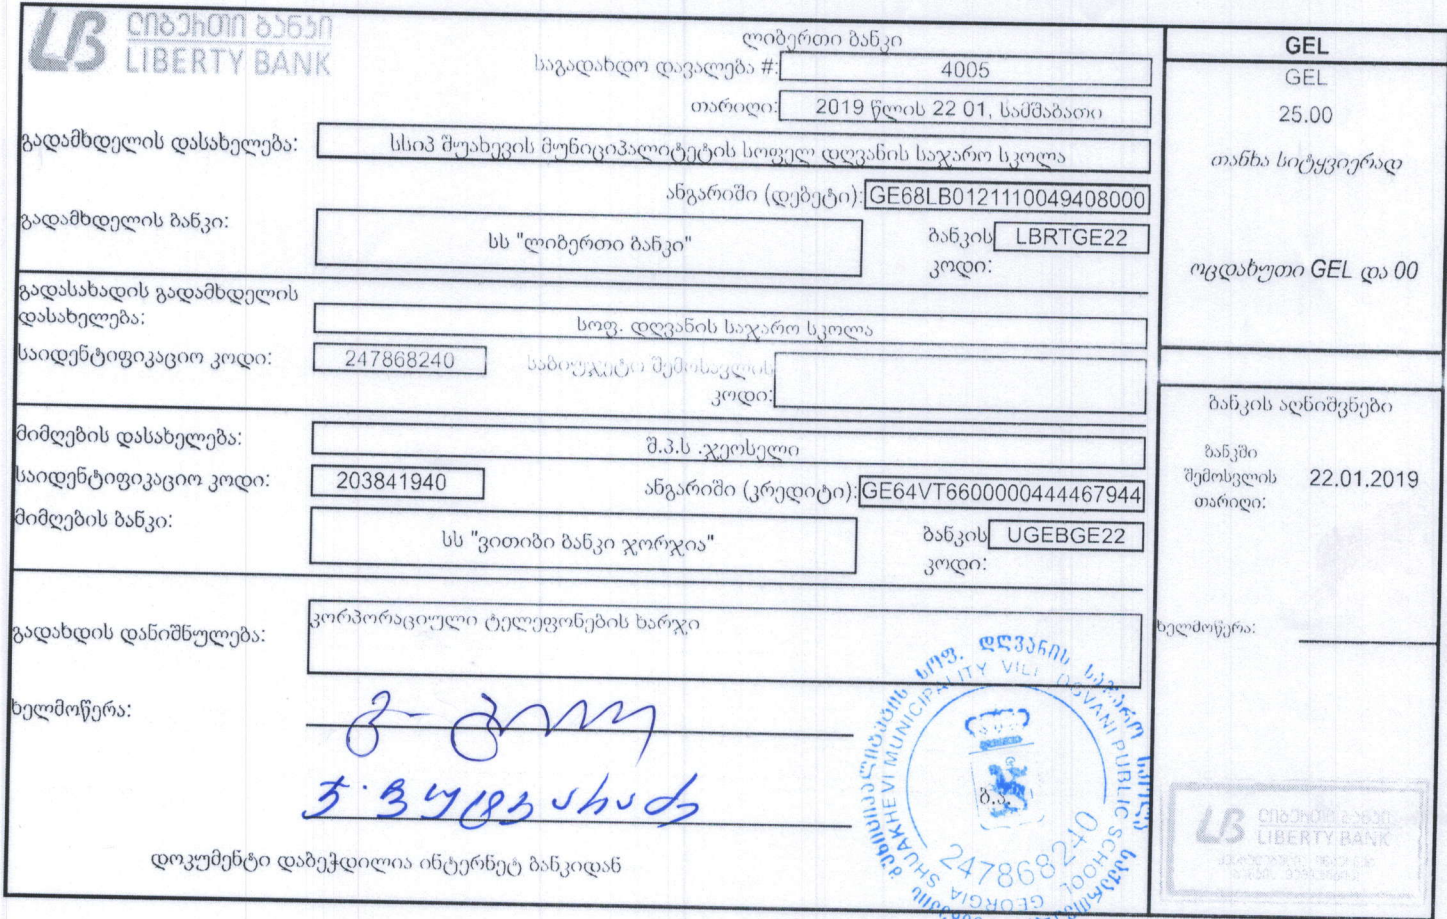 LB ლიბერთი ბანკი
LIBERTY BANK
ლიბერთი ბანკი
საგადახდო დავალება #: 4005
თარიღი: 2019 წლის 22 01, სამშაბათი
გადამხდელის დასახელება: სსიპ შუახევის მუნიციპალიტეტის სოფელ დღვანის საჯარო სკოლა
ანგარიში (დებეტი): GE68LB0121110049408000
გადამხდელის ბანკი: სს "ლიბერთი ბანკი" ბანკის კოდი: LBRTGE22
გადასახადის გადამხდელის
დასახელება: სოფ. დღვანის საჯარო სკოლა
საიდენტიფიკაციო კოდი: 247868240 საბიუჯეტო შემოსავლის
კოდი:
მიმღების დასახელება: შ.პ.ს .ჯეოსელი
საიდენტიფიკაციო კოდი: 203841940 ანგარიში (კრედიტი): GE64VT6600000444467944
მიმღების ბანკი: სს "ვითიბი ბანკი ჯორჯია" ბანკის კოდი: UGEBGE22
გადახდის დანიშნულება: კორპორაციული ტელეფონების ხარჯი
ხელმოწერა:
დოკუმენტი დაბეჭდილია ინტერნეტ ბანკიდან
GEL
GEL
25.00
თანხა სიტყვიერად
ოცდახუთი GEL და 00
ბანკის აღნიშვნები
ბანკში
შემოსვლის 22.01.2019
თარიღი:
ხელმოწერა:
სოფ. დღვანის საჯარო სკოლა
SHUAKHEVI MUNICIPALITY VILL DGVANI PUBLIC SCHOOL
GEORGIA
ბ.ა.
247868240
LB ლიბერთი ბანკი
LIBERTY BANK